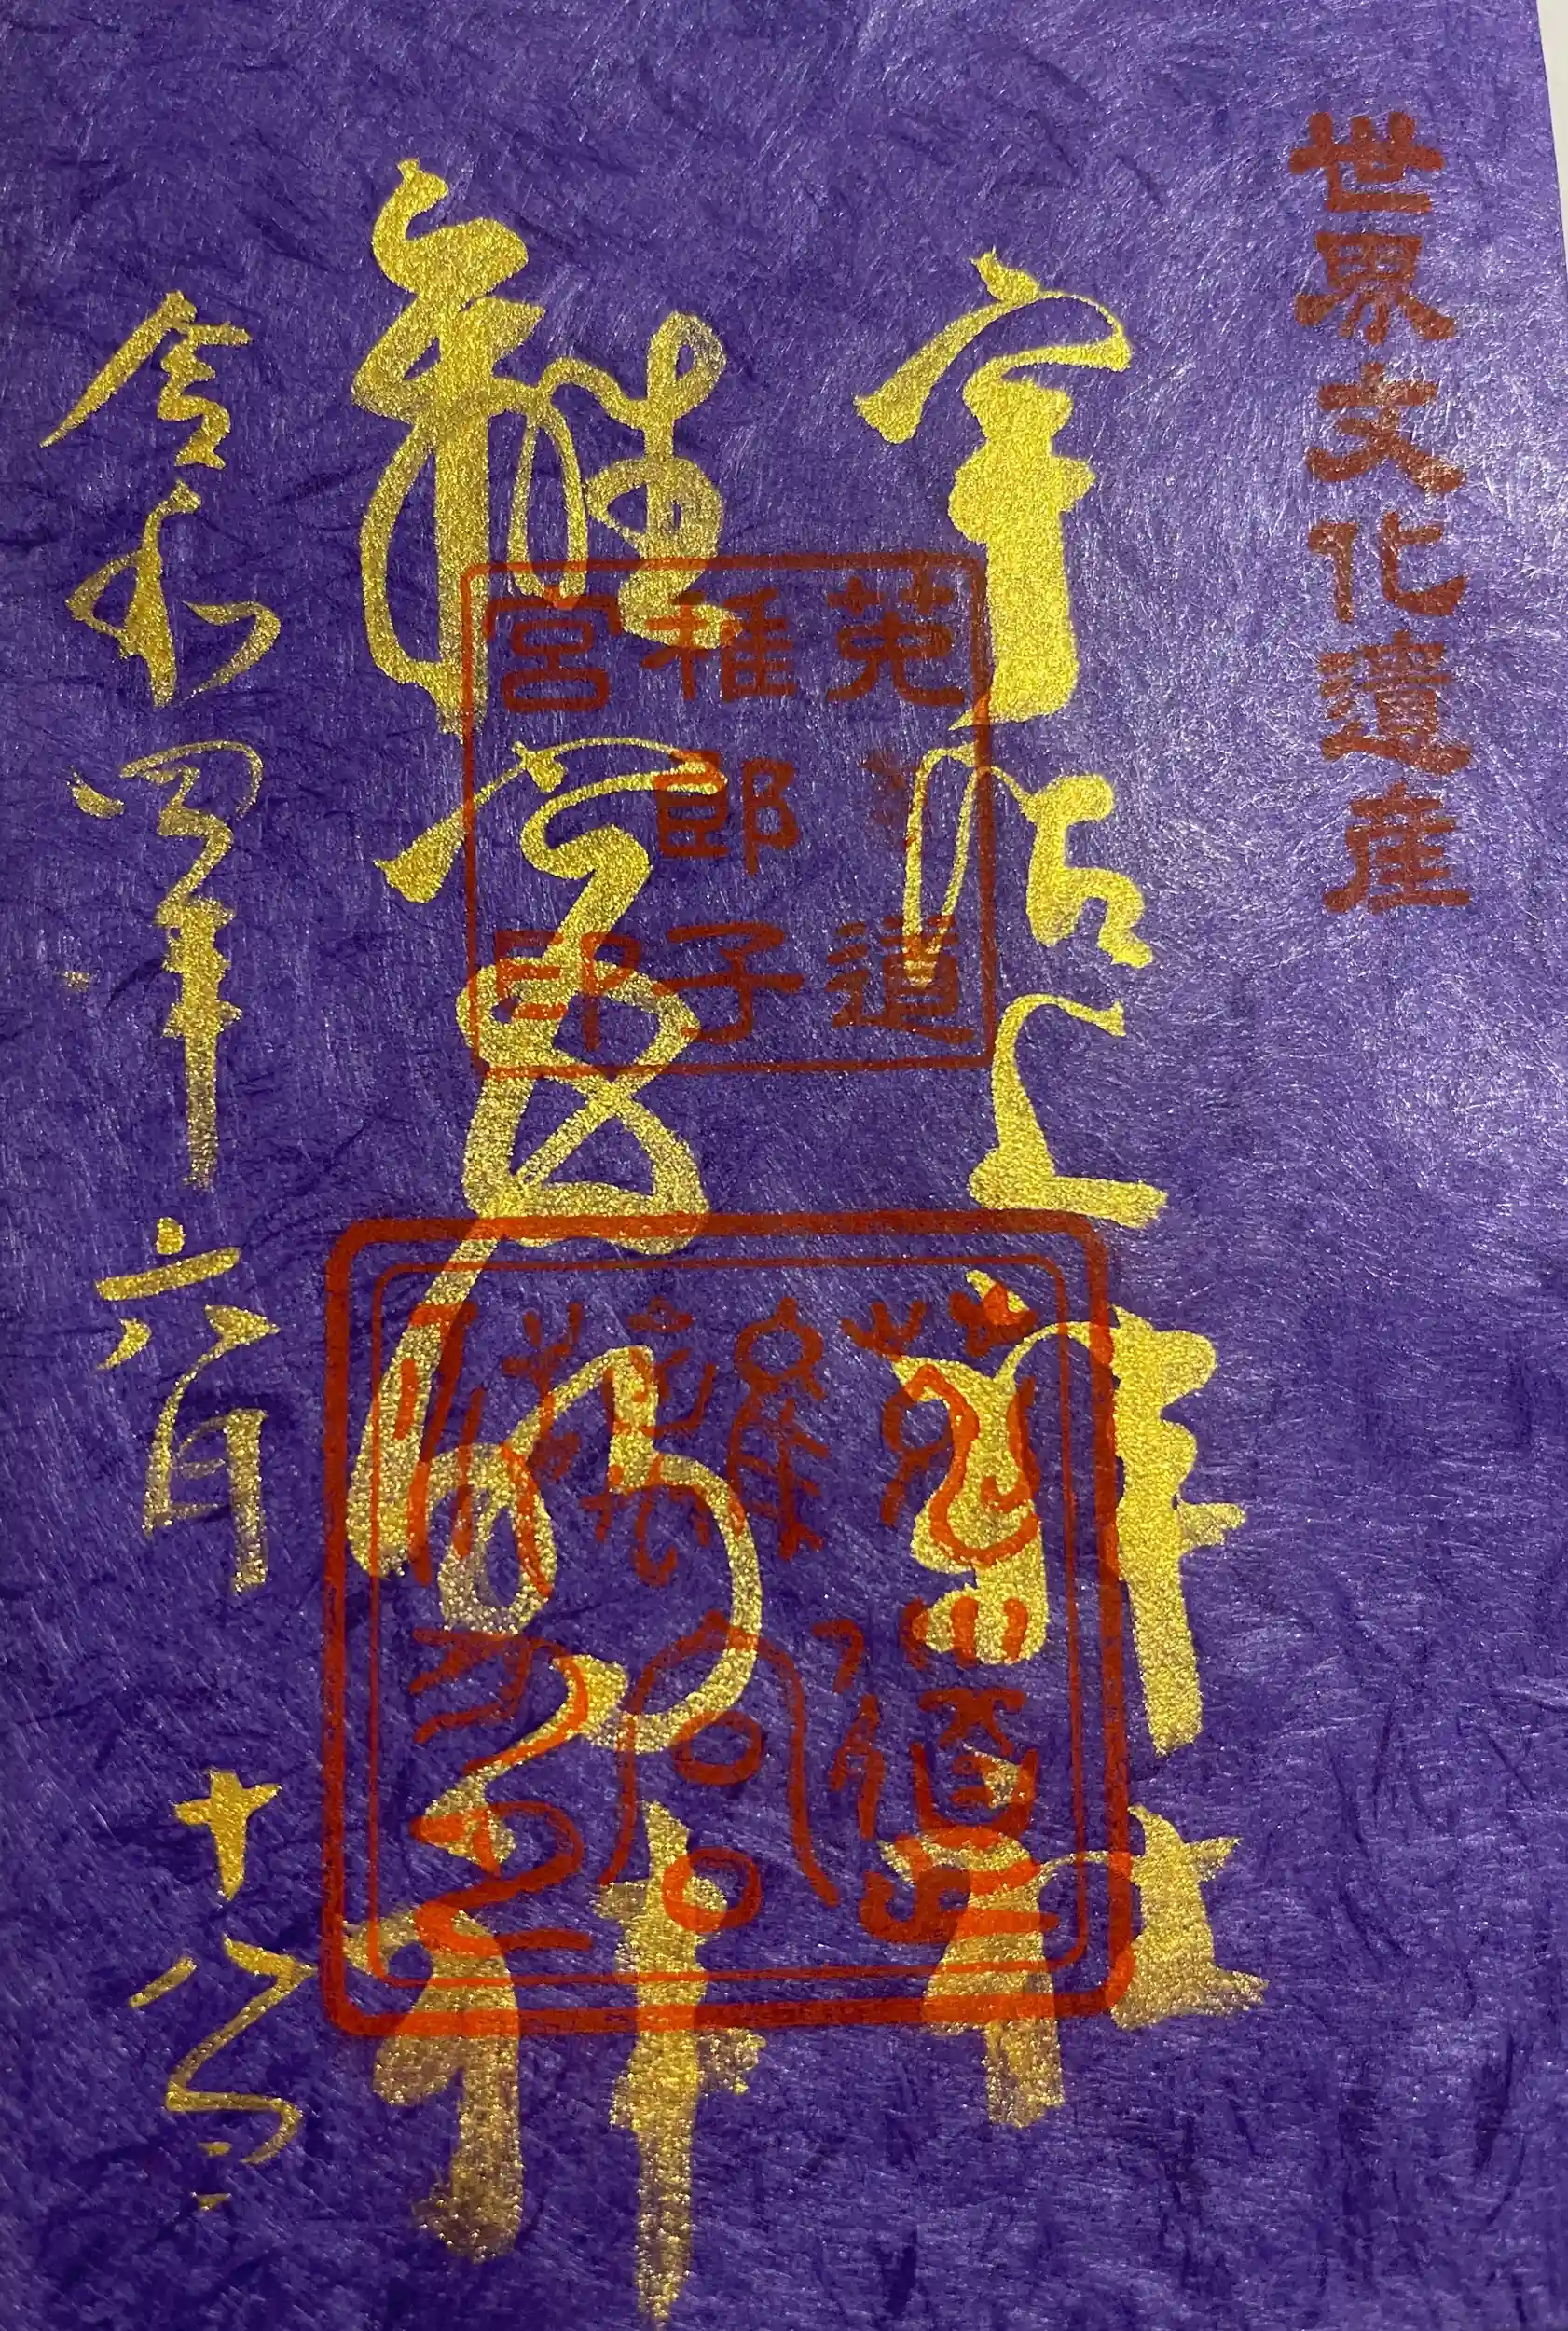 世界文化遺産
宇治上神社
離宮明神
令和四年六月十八日
菟道
稚郎子
宮印